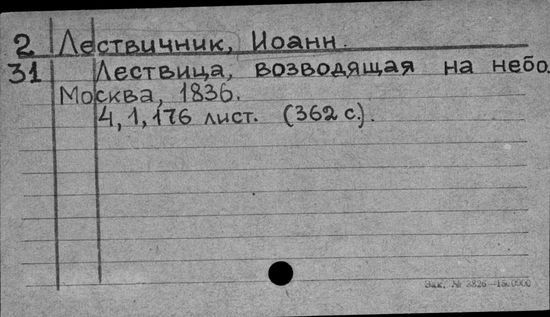 2 Лествичник, Иоанн.
31 Лествица, возводящая на небо.
Москва, 1836.
4, 1, 176 лист. (362 с.).
Зак. № 3826 —15.0000